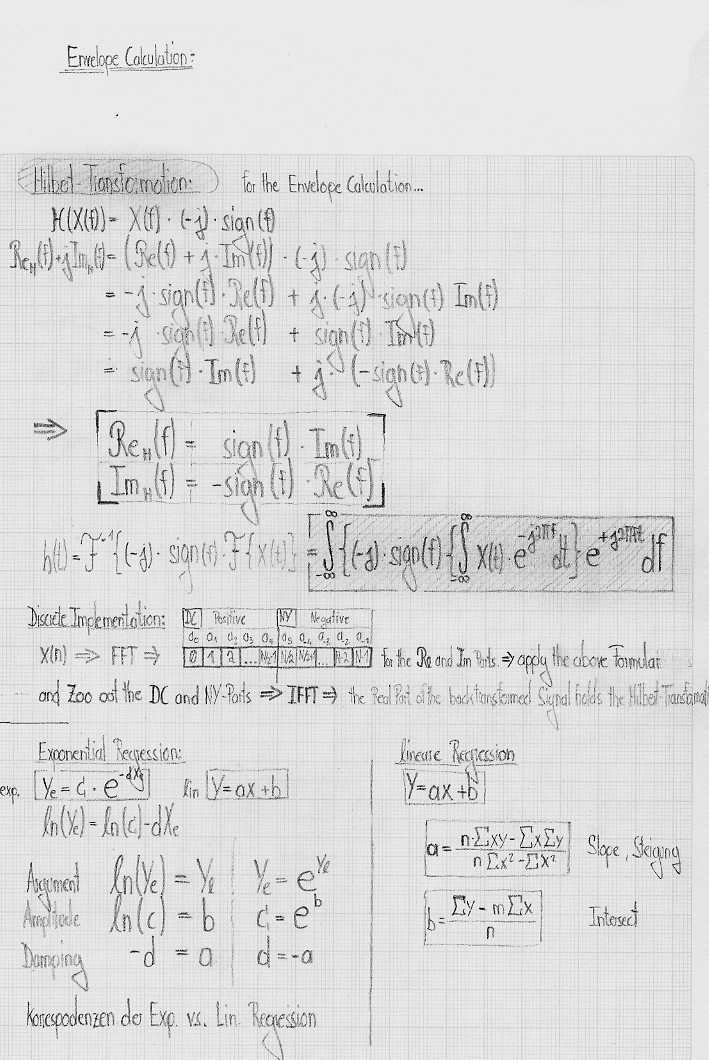 Envelope Calculation:
Hilbet-Transformation: for the Envelope Calculation...
H(X(f)) = X(f) · (-j) · sign(f)
Re_H(f)+jIm_H(f) = (Re(f) + j · Im(f)) · (-j) · sign(f)
= -j · sign(f) · Re(f) + j·(-j) · sign(f) Im(f)
= -j · sign(f) · Re(f) + sign(f) · Im(f)
= sign(f) · Im(f) + j · (-sign(f) · Re(f))
⇒ Re_H(f) = sign(f) · Im(f)
Im_H(f) = -sign(f) · Re(f)
h(t) = F^-1{(-j) · sign(f) · F{X(t)}} = ∫_-∞^∞{(-j) · sign(f) {∫_-∞^∞ X(t) · e^-j2πf dt} e^+j2πft df
Discrete Implementation: DC Positive NY Negative
a_0 a_1 a_2 a_3 a_4 a_5 a_-4 a_-3 a_-2 a_-1
X(n) ⇒ FFT ⇒ 0 1 2 ... N/2-1 N/2 N/2+1 ... N-2 N-1 for the Re and Im Parts. ⇒ apply the above Formular
and Zoo out the DC and NY-Parts ⇒ IFFT ⇒ the Real Part of the backtransformed Signal holds the Hilbet-Transformati
Exponential Regression:
exp. Y_e = C · e^-dX_e lin Y=ax+b
ln(Y_e) = ln(c)-dX_e
Argument ln(Y_e) = Y_l Y_e = e^Y_l
Amplitude ln(c) = b C = e^b
Damping -d = a d = -a
Korrespodenzen der Exp. vs. Lin. Regression
lineare Regression
Y=ax+b
a = n·Σxy - ΣxΣy / nΣx² - Σx² Slope, Steigung
b = Σy - mΣx / n Intersect